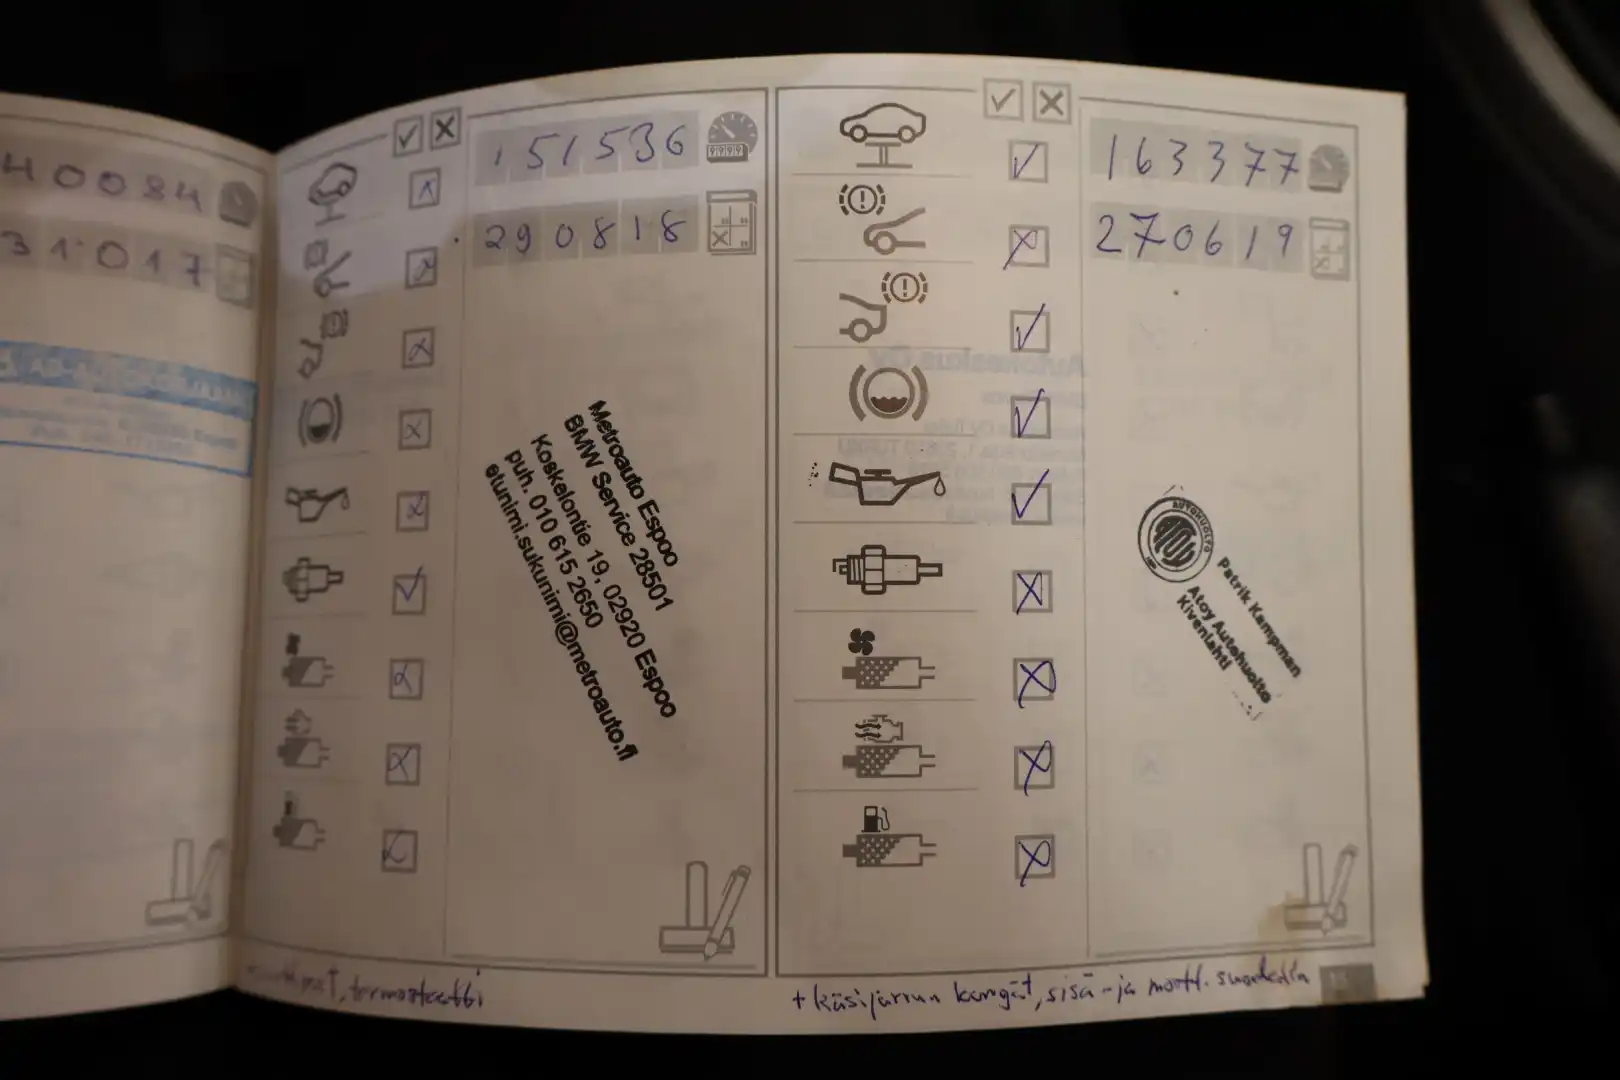 40084
31 0 17
151536
290818
Metroauto Espoo
BMW Service 28501
Koskelontie 19, 02920 Espoo
puh. 010 615 2650
etunimi.sukunimi@metroauto.fi
termostaatti
163377
270619
AUTOHUOLTO
Patrik Kampman
Atoy Autohuolto
Kivenlahti
+ käsijarrun kengät, sisä- ja moott. suodatin